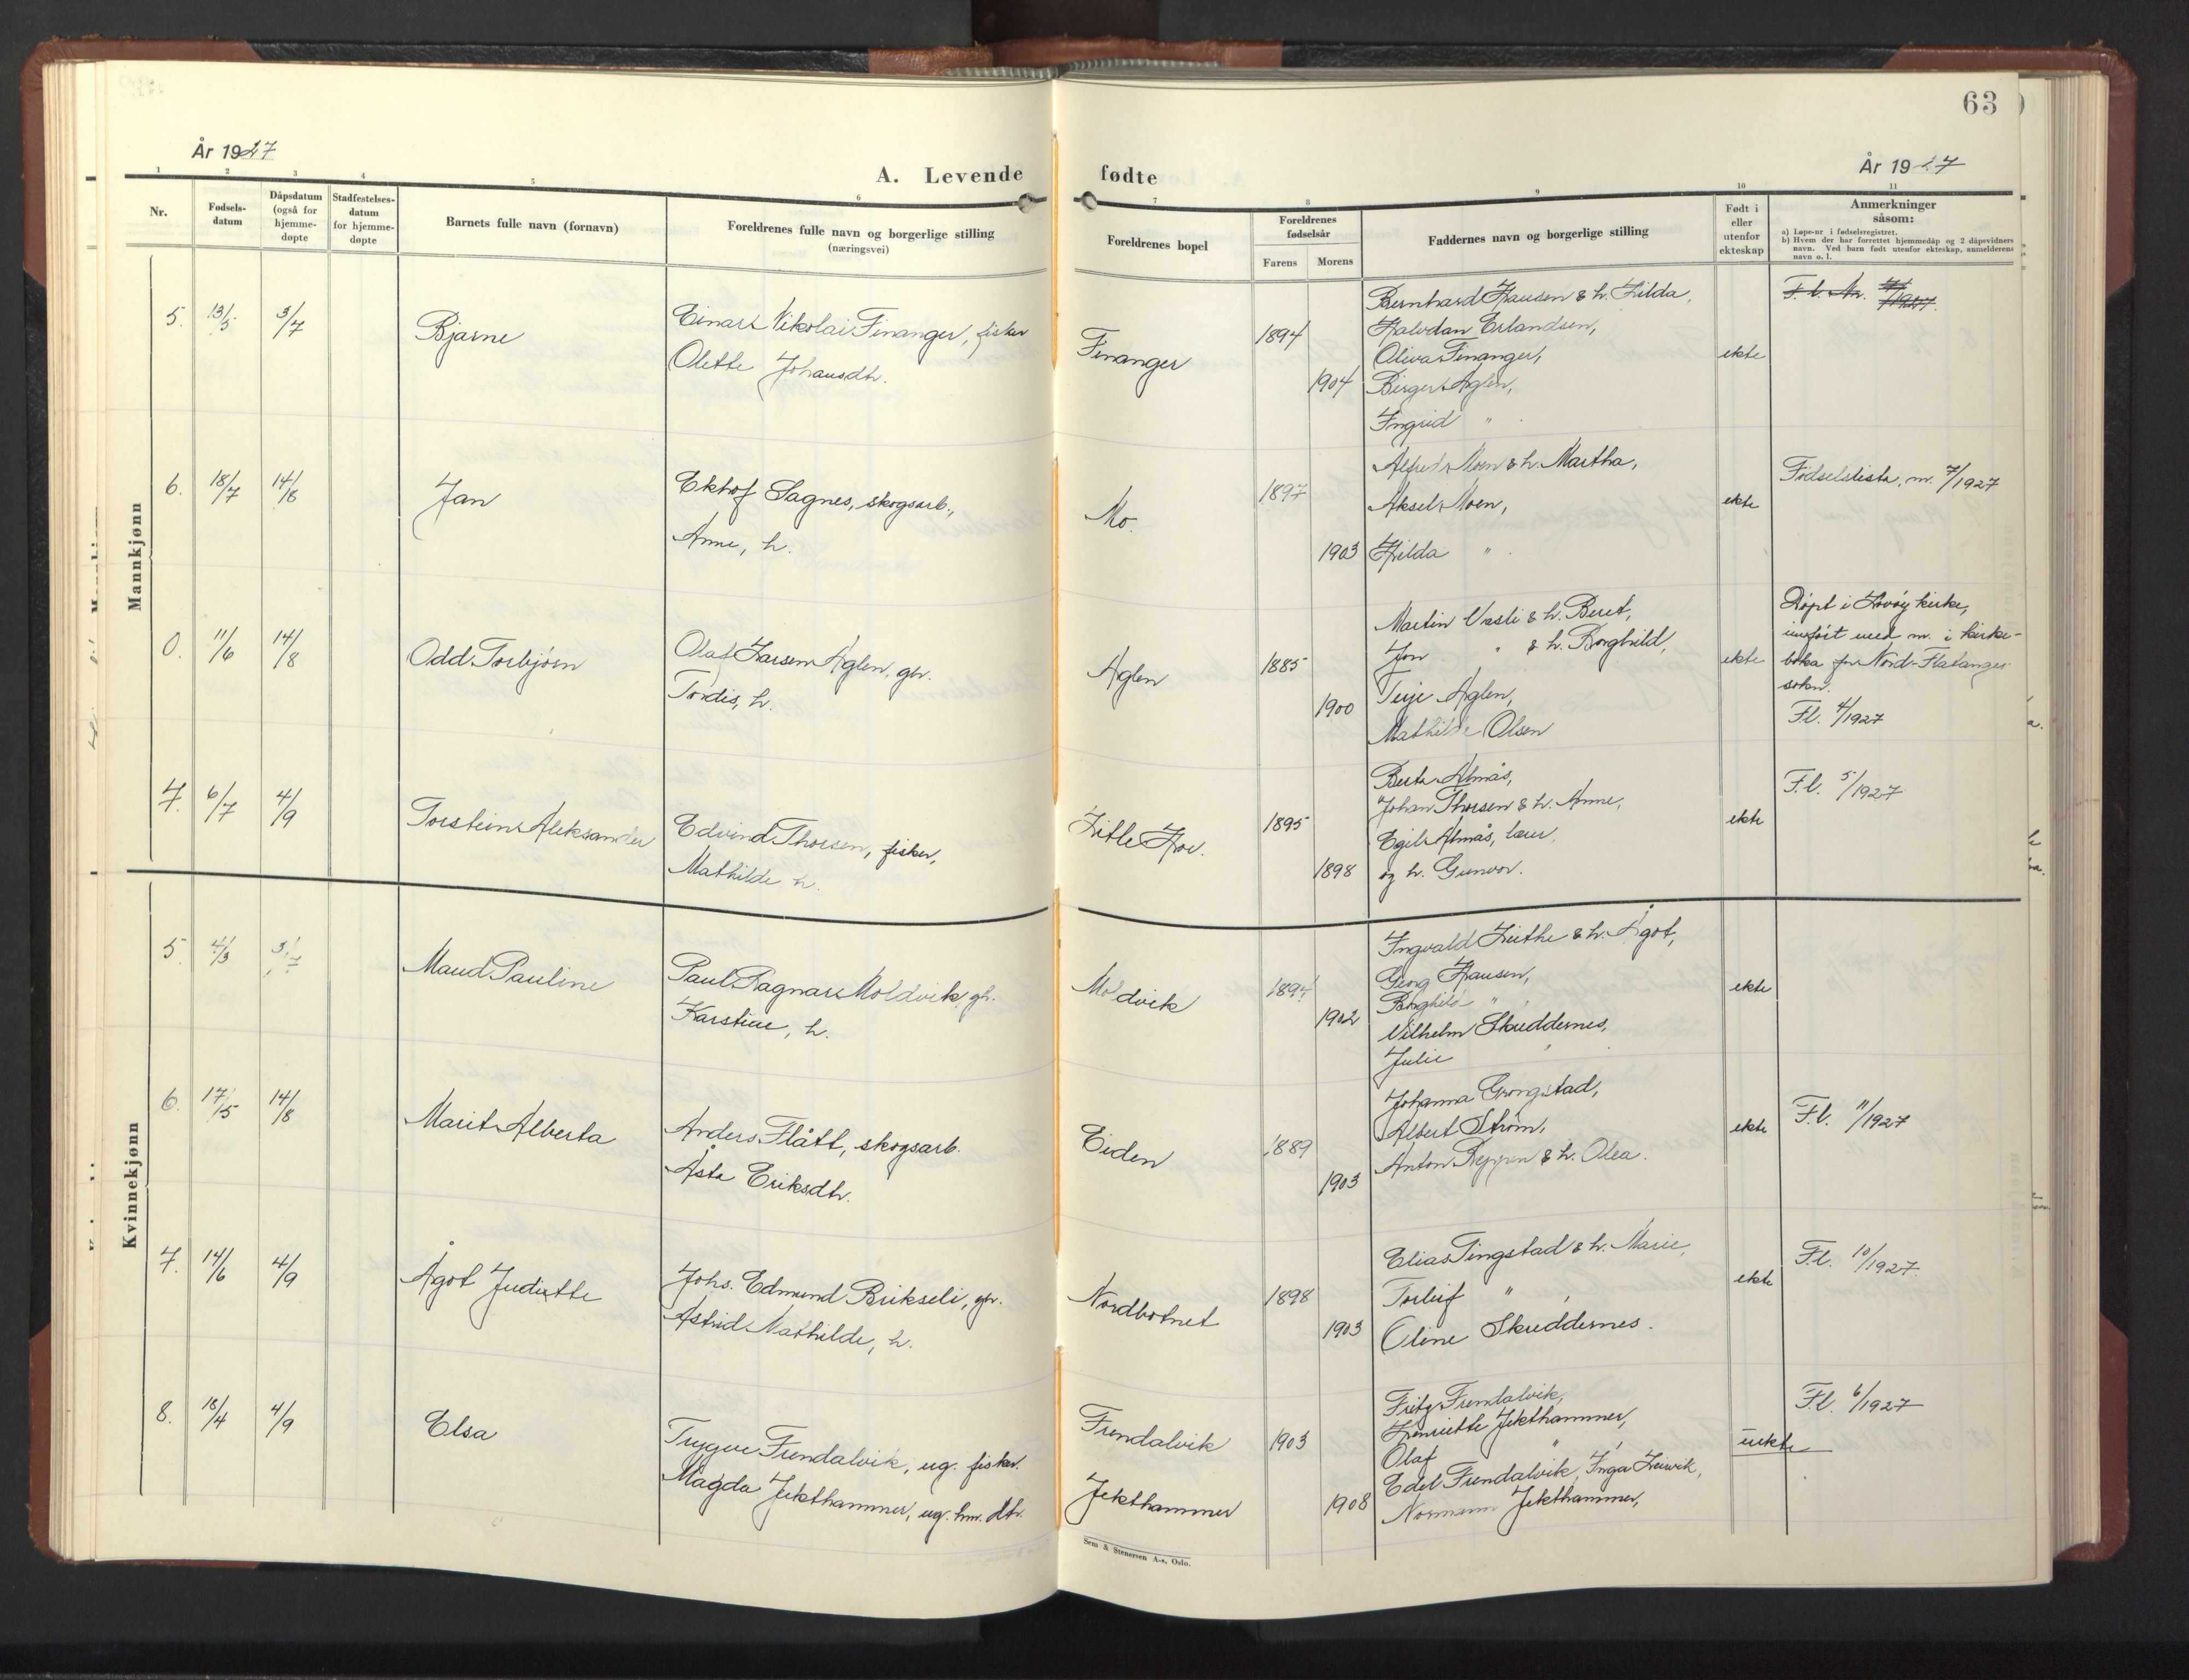 63
År 1927
A. Levende
fødte
År 1927
1 2 3 4 5 6 7 8 9 10 11
Nr.
Fødsels-
datum
Dåpsdatum
(også for
hjemme-
døpte
Stadfestelses-
datum
for hjemme-
døpte
Barnets fulle navn (fornavn)
Foreldrenes fulle navn og borgerlige stilling
(næringsvei)
Foreldrenes bopel
Foreldrenes
fødselsår
Farens Morens
Faddernes navn og borgerlige stilling
Født i
eller
utenfor
ekteskap
Anmerkninger
såsom:
a) Løpe-nr i fødselsregistret.
b) Hvem der har forrettet hjemmedåp og 2 dåpsvidners
navn. Ved barn født utenfor ekteskap, anmelderens
navn o. l.
Mannkjønn
5. 13/5 3/7 Bjarne
Einar Nikolai Finanger, fisker
Olette Johansdtr.
Finanger
1894
1904
Bernhard Hansen & h. Hilda,
Halvdan Erlandsen,
Oliva Finanger,
Birger Aglen,
Ingrid "
ekte
F. l. Nr.
6. 18/7 14/8 Jan
Ekhof Sagnes, skogsarb.,
Anne, h.
Mo.
1897
1903
Alfred Moen & h. Martha,
Aksel Moen,
Hilda "
ekte
Fødselslista, nr. 7/1927
0. 11/6 14/8 Odd Torbjørn
Olaf Larsen Aglen, gbr.
Tordis, h.
Aglen
1885
1900
Martin Vasli & h. Beret,
Jon " & h. Borghild,
Terje Aglen,
Mathilde Olsen
ekte
Døpt i Løvøy kirke,
innført med nr. i kirke-
boka for Nord-Flatanger
sokn.
Fl. 4/1927
7. 6/7 4/9 Torstein Aleksander
Edvind Thorsen, fisker,
Mathilde h.
Litle Hov.
1895
1898
Berta Almås,
Johan Thorsen & h. Anne,
Egil Almås, lærer,
og h. Gunvor.
ekte
F.l. 5/1927
Kvinnekjønn
5 4/3 3/7 Maud Pauline
Paul Ragnar Moldvik, gbr.
Karstine, h.
Moldvik
1894
1902
Ingvald Liethe & h. Ågot,
Georg Hansen,
Borghild "
Vilhelm Skuddernes,
Julie "
ekte
6. 17/5 14/8 Marit Alberta
Anders Flått, skogsarb.
Åsta Eriksdtr.
Eiden
1889
1903
Johanna Grongstad,
Albert Strøm,
Anton Reppen & h. Olea.
ekte
F.l. 11/1927
7. 14/6 4/9 Ågot Judiette
Johs. Edmund Brikseli, gbr.
Astrid Mathilde, h.
Nordbotnet
1898
1903
Elias Tingstad & h. Marie,
Torleif "
Oline Skuddernes.
ekte
F.l. 10/1927
8. 18/4 4/9 Elsa
Trygve Frendalvik, ug. fisker.
Magda Jekthammer, ug. hm. dtr.
Frendalvik
Jekthammer
1903
1908
Fritz Frendalvik,
Henriette Jekthammer,
Olaf "
Edel Frendalvik, Inga Leirvik,
Normann Jekthammer,
uekte
F.l. 6/1927
Sem & Stenersen A-s, Oslo.